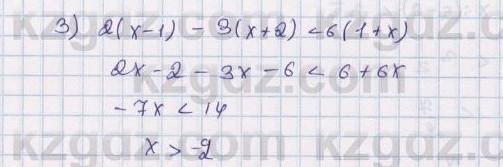 3) 2(x-1) - 3(x+2) < 6(1+x)
2x - 2 - 3x - 6 < 6 + 6x
- 7x < 14
x > -2
kzgdz.com